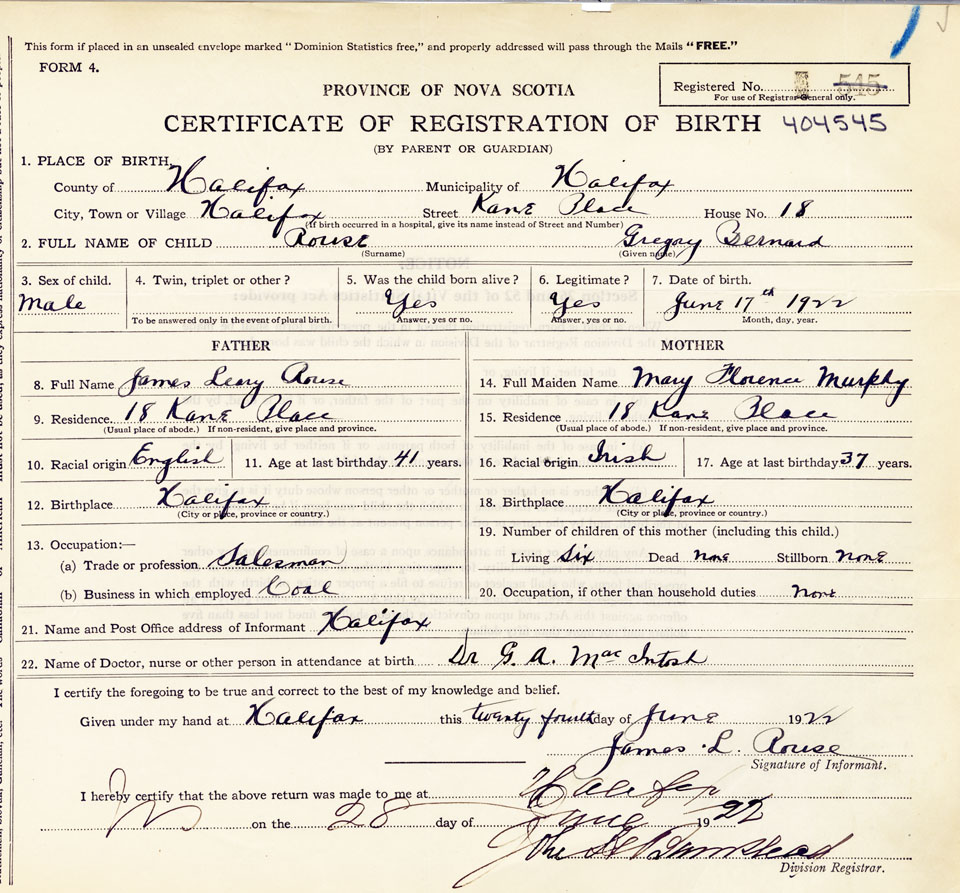 This form if placed in an unsealed envelope marked "Dominion Statistics free," and properly addressed will pass through the Mails "FREE."
FORM 4.
PROVINCE OF NOVA SCOTIA
Registered No. 545
For use of Registrar-General only.
CERTIFICATE OF REGISTRATION OF BIRTH 404545
(BY PARENT OR GUARDIAN)
1. PLACE OF BIRTH,
County of Halifax Municipality of Halifax
City, Town or Village Halifax Street Kane Place House No. 18
(If birth occurred in a hospital, give its name instead of Street and Number)
2. FULL NAME OF CHILD Rouse Gregory Bernard
(Surname) (Given name)
3. Sex of child. 4. Twin, triplet or other? 5. Was the child born alive? 6. Legitimate? 7. Date of birth.
Male Yes Yes June 17th 1922
To be answered only in the event of plural birth. Answer, yes or no. Answer, yes or no. Month, day, year.
FATHER MOTHER
8. Full Name James Leary Rouse 14. Full Maiden Name Mary Florence Murphy
9. Residence 18 Kane Place 15. Residence 18 Kane Place
(Usual place of abode.) If non-resident, give place and province. (Usual place of abode.) If non-resident, give place and province.
10. Racial origin English 11. Age at last birthday 41 years. 16. Racial origin Irish 17. Age at last birthday 37 years.
12. Birthplace Halifax 18. Birthplace Halifax
(City or place, province or country.) (City or place, province or country.)
13. Occupation:— 19. Number of children of this mother (including this child.)
(a) Trade or profession Salesman Living Six Dead none Stillborn none
(b) Business in which employed Coal 20. Occupation, if other than household duties none
21. Name and Post Office address of Informant Halifax
22. Name of Doctor, nurse or other person in attendance at birth Dr G. A. MacIntosh
I certify the foregoing to be true and correct to the best of my knowledge and belief.
Given under my hand at Halifax this twenty fourth day of June 1922
James L. Rouse
Signature of Informant.
I hereby certify that the above return was made to me at Halifax
on the 28 day of June 1922
Division Registrar.